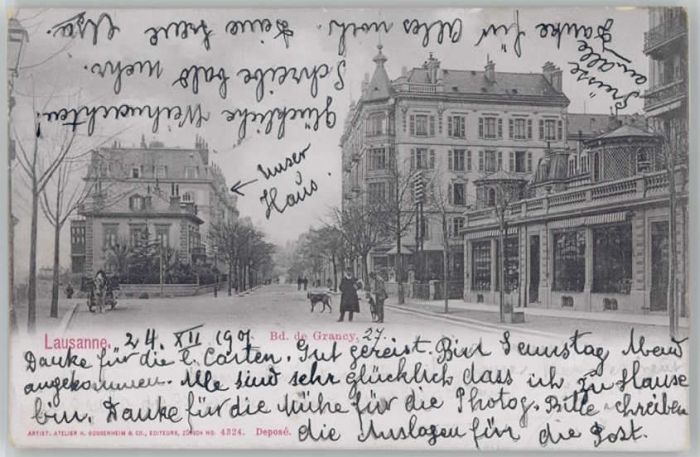 Glückliche Weihnachten!
Schreibe bald mehr.
Danke für Alles noch. Deine treue Elsa.
Grüsse
an alle
Unser
Haus.
Lausanne. 24. XII 190 Bd. de Grancy. 27.
Danke für die l. Carten. Gut gereist. Bin Samstag Abend
angekommen. Alle sind sehr glücklich dass ich zu Hause
bin. Danke für die Mühe für die Photog. Bitte schreiben
die Auslagen für die Post.
ARTIST. ATELIER H. GUGGENHEIM & CO., EDITEURS, ZÜRICH NO. 4324. Deposé.